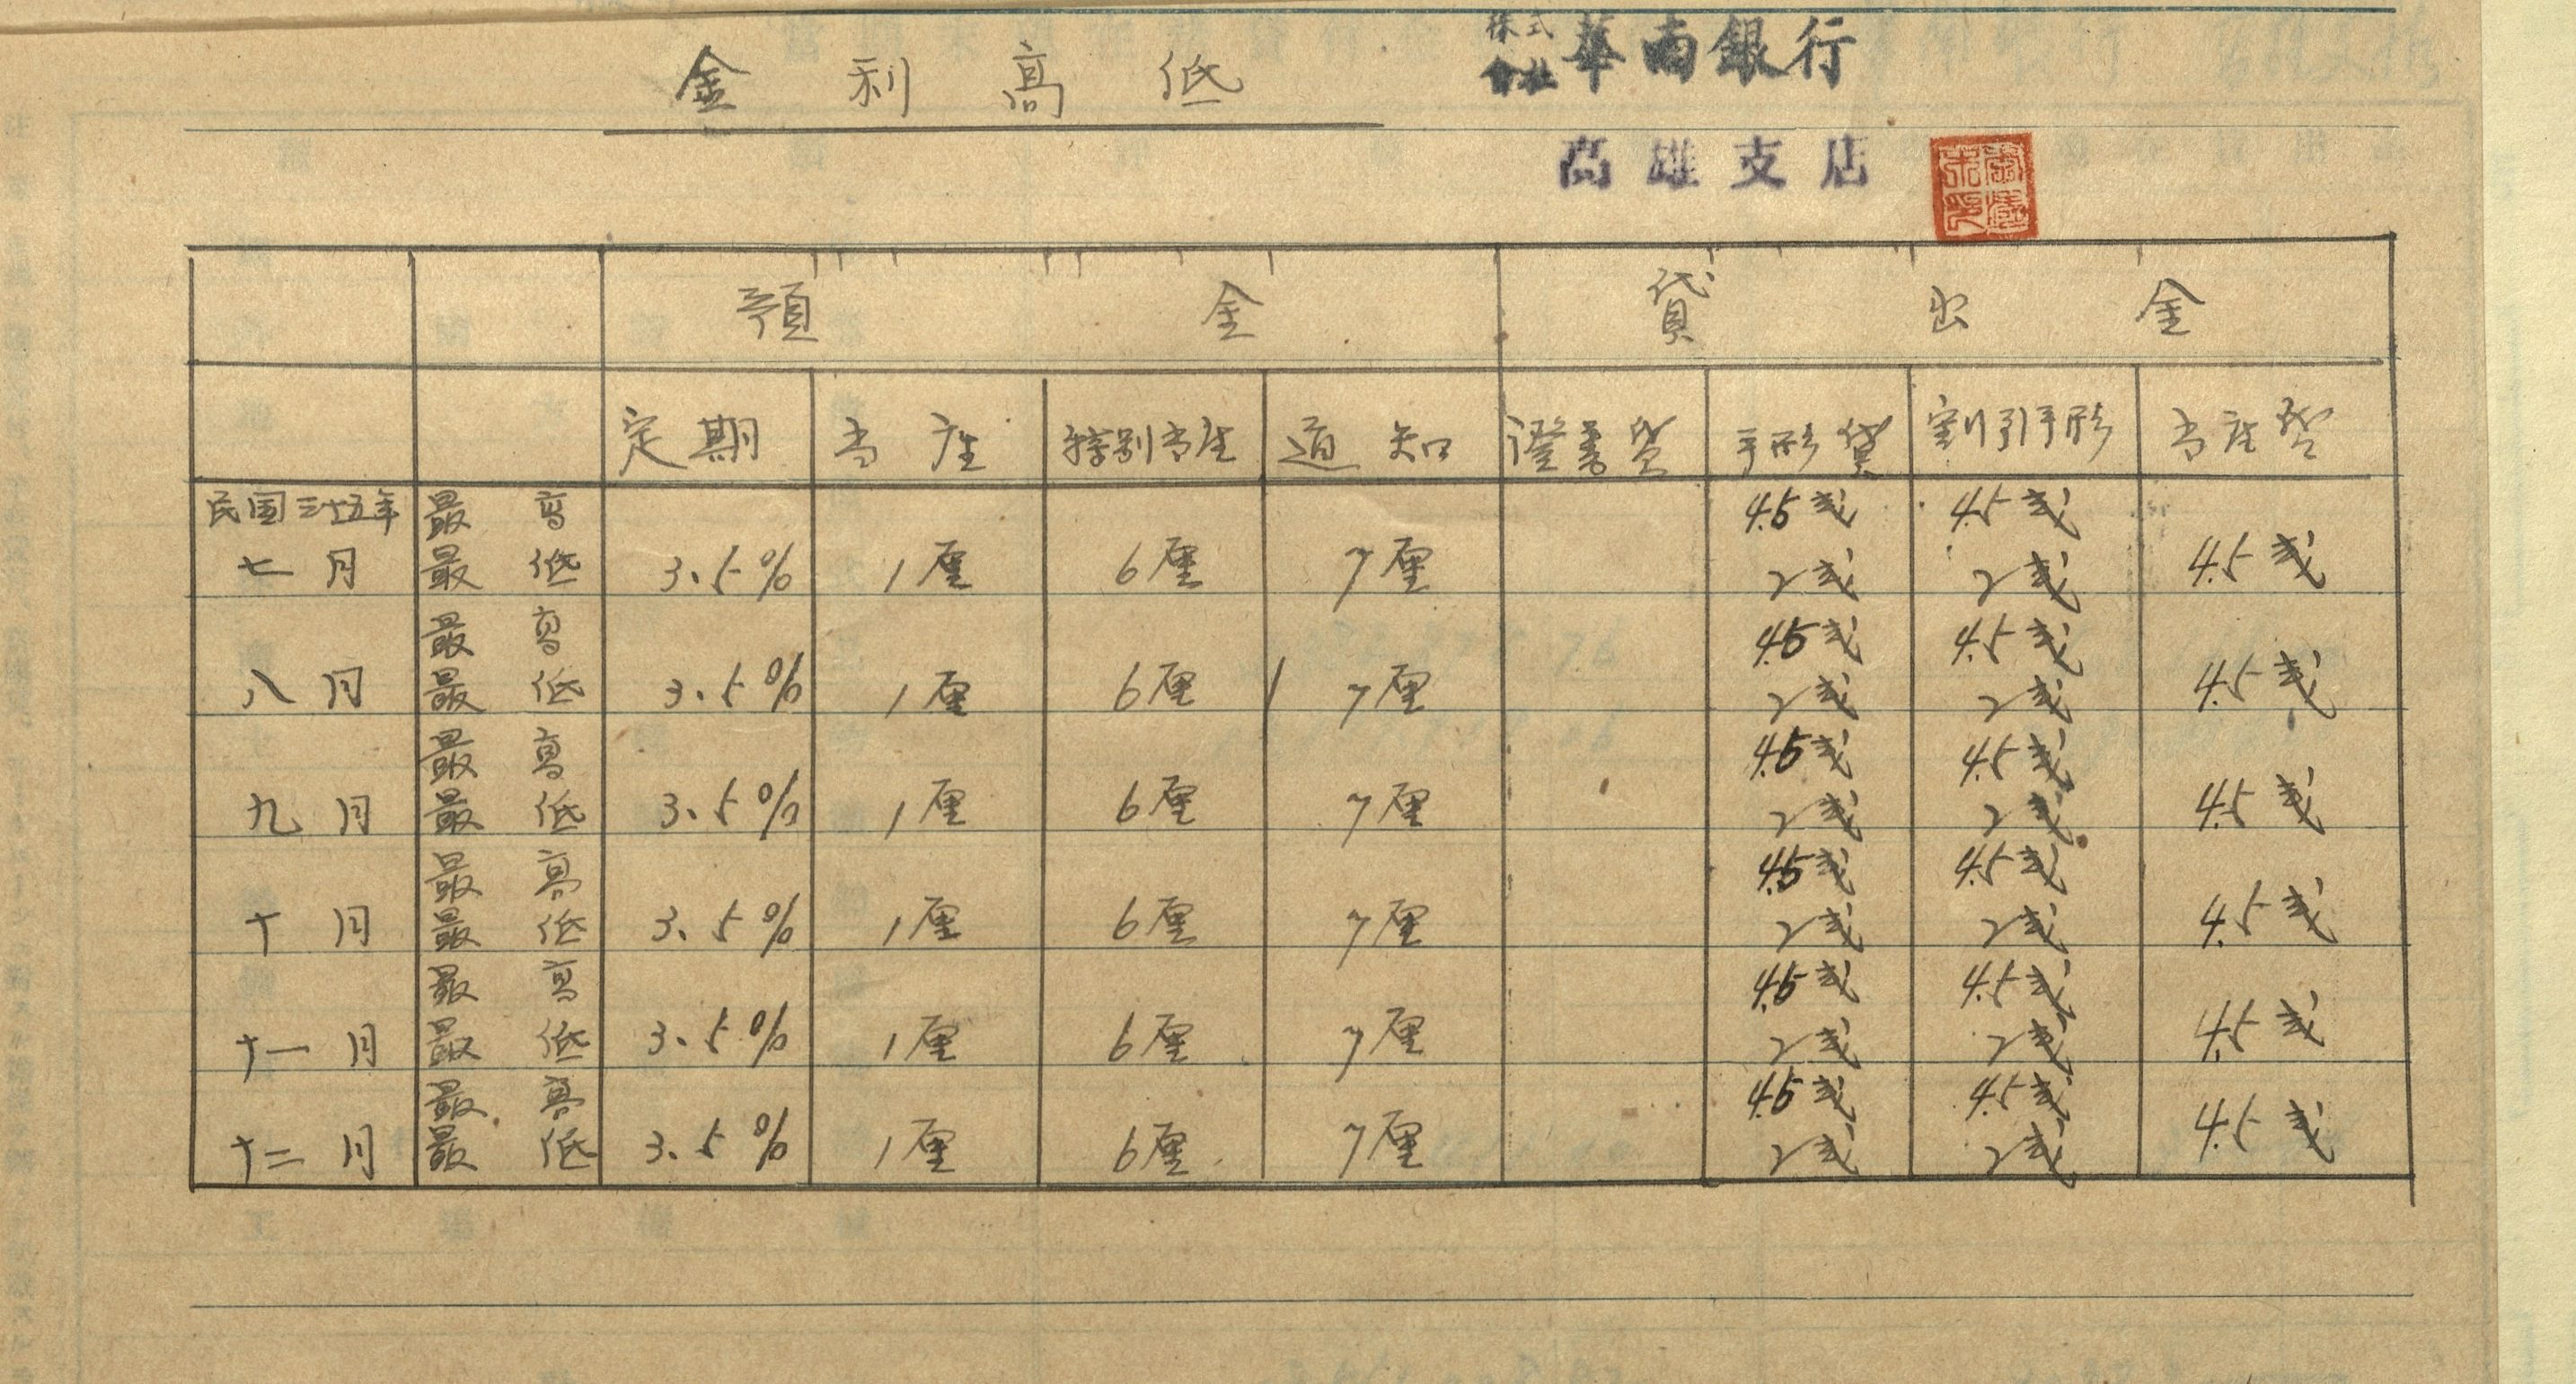 金利高低
株式會社 華南銀行
高雄支店
預金 貸出金
定期 当座 特别当座 通知 證書貸 手形貸 割引手形 当座貸
民国三十五年 最高 4.5戋 4.5戋
七月 最低 3.5% 1厘 6厘 7厘 2戋 2戋 4.5戋
最高 4.5戋 4.5戋
八月 最低 3.5% 1厘 6厘 7厘 2戋 2戋 4.5戋
最高 4.5戋 4.5戋
九月 最低 3.5% 1厘 6厘 7厘 2戋 2戋 4.5戋
最高 4.5戋 4.5戋
十月 最低 3.5% 1厘 6厘 7厘 2戋 2戋 4.5戋
最高 4.5戋 4.5戋
十一月 最低 3.5% 1厘 6厘 7厘 2戋 2戋 4.5戋
最高 4.5戋 4.5戋
十二月 最低 3.5% 1厘 6厘 7厘 2戋 2戋 4.5戋